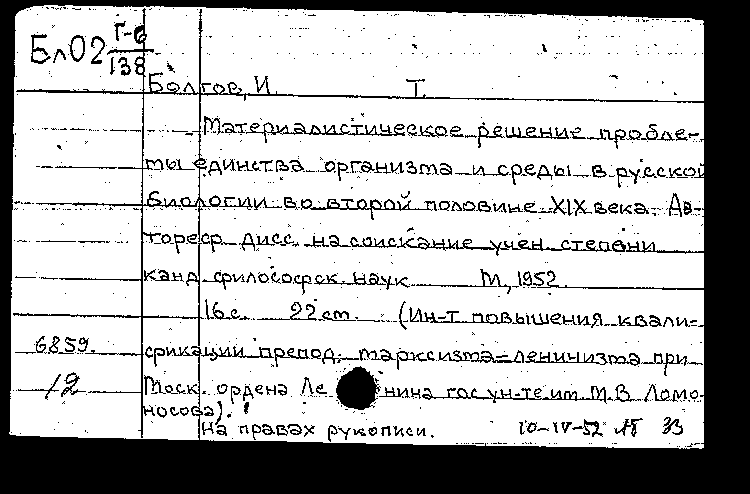 Бл02 Г-6
138
Болгов, И. Т.
Материалистическое решение пробле-
мы единства организма и среды в русской
биологии во второй половине XIX века. Ав-
тореф. дисс. на соискание учен. степени
канд. философск. наук М., 1952.
16 с. 22 см. (Ин-т повышения квали-
6859. фикации препод. марксизма-ленинизма при
12 Моск. ордена Ленина гос ун-те им. М. В Ломо-
носова).
На правах рукописи. 10-IV-52